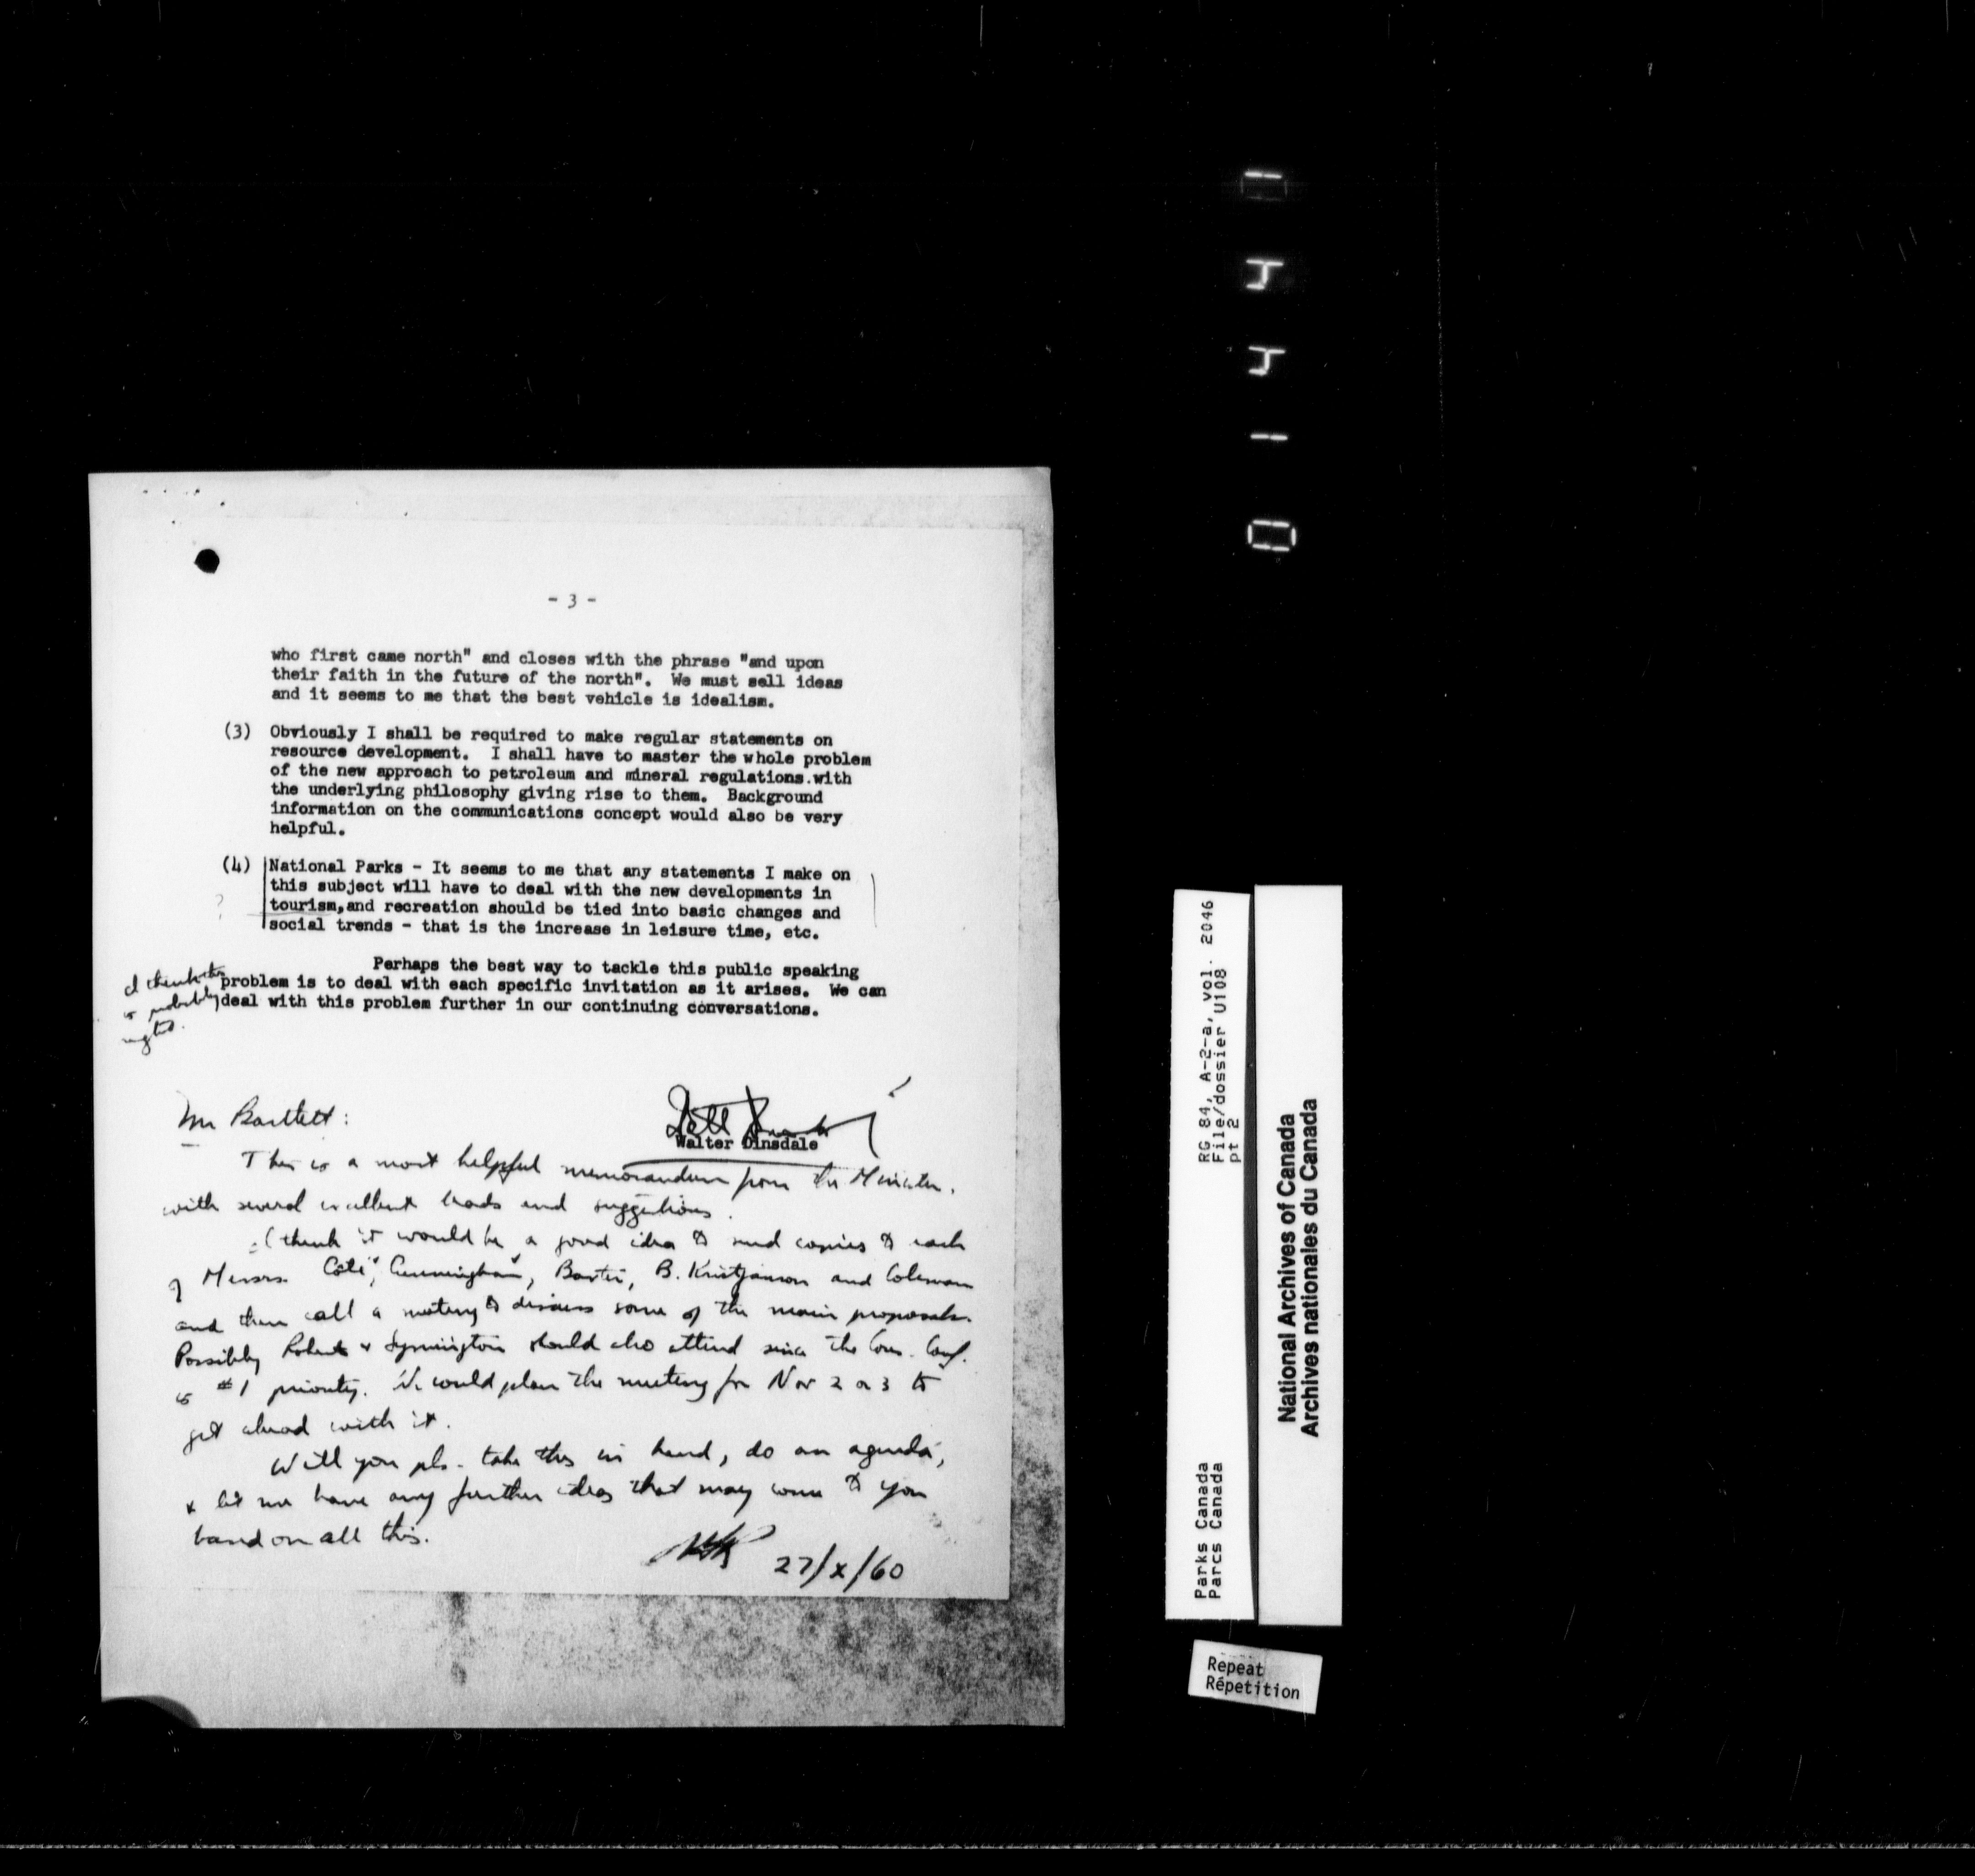 - 3 -
who first came north" and closes with the phrase "and upon
their faith in the future of the north". We must sell ideas
and it seems to me that the best vehicle is idealism.
(3) Obviously I shall be required to make regular statements on
resource development. I shall have to master the whole problem
of the new approach to petroleum and mineral regulations.with
the underlying philosophy giving rise to them. Background
information on the communications concept would also be very
helpful.
(4) National Parks - It seems to me that any statements I make on
this subject will have to deal with the new developments in
? tourism,and recreation should be tied into basic changes and
social trends - that is the increase in leisure time, etc.
Perhaps the best way to tackle this public speaking
problem is to deal with each specific invitation as it arises. We can
deal with this problem further in our continuing conversations.
I think this
is probably
right.
Walter Dinsdale
Mr Bartlett:
This is a most helpful memorandum from the Minister,
with several excellent leads and suggestions.
I think it would be a good idea to send copies to each
of Messrs. Coté, Cunningham, Baxter, B. Kristjanson and Coleman
and then call a meeting to discuss some of the main proposals.
Possibly Roberts & Symington should also attend since the Cons. Conf.
is #1 priority. We could plan the meeting for Nov 2 or 3 to
get ahead with it.
Will you pls. take this in hand, do an agenda,
& let me have any further ideas that may come to you
based on all this.
27/X/60
RG 84, A-2-a, vol. 2046
File/dossier U108
pt 2
Parks Canada
Parcs Canada
National Archives of Canada
Archives nationales du Canada
Repeat
Répetition